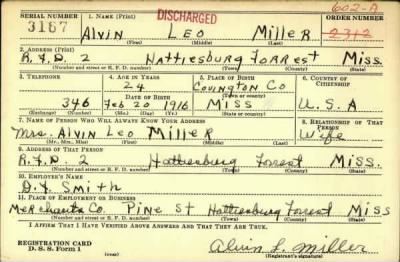 602-A
SERIAL NUMBER 1. NAME (Print) DISCHARGED ORDER NUMBER
3167 Alvin Leo Miller 2312
(First) (Middle) (Last)
2. ADDRESS (Print)
R.F.D. 2 Hattiesburg Forrest Miss.
(Number and street or R. F. D. number) (Town) (County) (State)
3. TELEPHONE 4. AGE IN YEARS 5. PLACE OF BIRTH 6. COUNTRY OF CITIZENSHIP
24 Covington Co
(Town or county)
346 DATE OF BIRTH
Feb 20 1916 Miss U.S.A
(Exchange) (Number) (Mo.) (Day) (Yr.) (State or country)
7. NAME OF PERSON WHO WILL ALWAYS KNOW YOUR ADDRESS 8. RELATIONSHIP OF THAT PERSON
Mrs. Alvin Leo Miller Wife
(Mr., Mrs., Miss) (First) (Middle) (Last)
9. ADDRESS OF THAT PERSON
R.F.D. 2 Hattiesburg Forrest Miss.
(Number and street or R. F. D. number) (Town) (County) (State)
10. EMPLOYER'S NAME
Smith
11. PLACE OF EMPLOYMENT OR BUSINESS
Merchants Co. Pine St Hattiesburg Forrest Miss
(Number and street or R. F. D. number) (Town) (County) (State)
I AFFIRM THAT I HAVE VERIFIED ABOVE ANSWERS AND THAT THEY ARE TRUE.
REGISTRATION CARD
D. S. S. Form 1 Alvin L. Miller
(Registrant's signature)